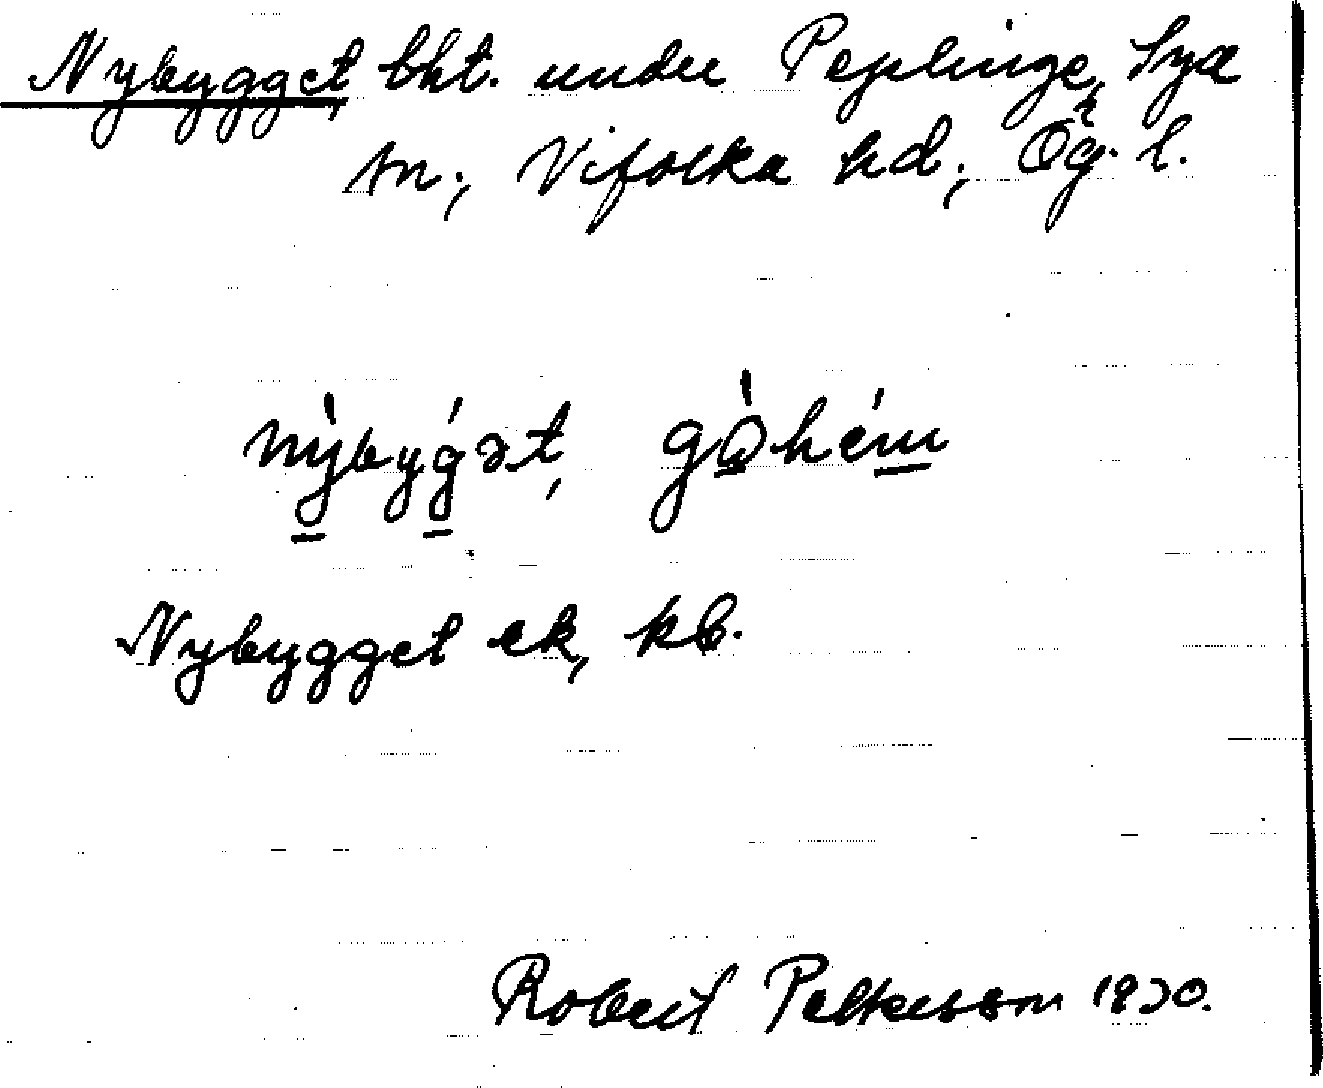 Nybygget, bht. under Peplinge, Sya
sn., Vifolka hd., Ög. l.
nỳ̱byǵ̱ət, gò̱hém̱
Nybygget ek, kb.
Robert Pettersson 1930.